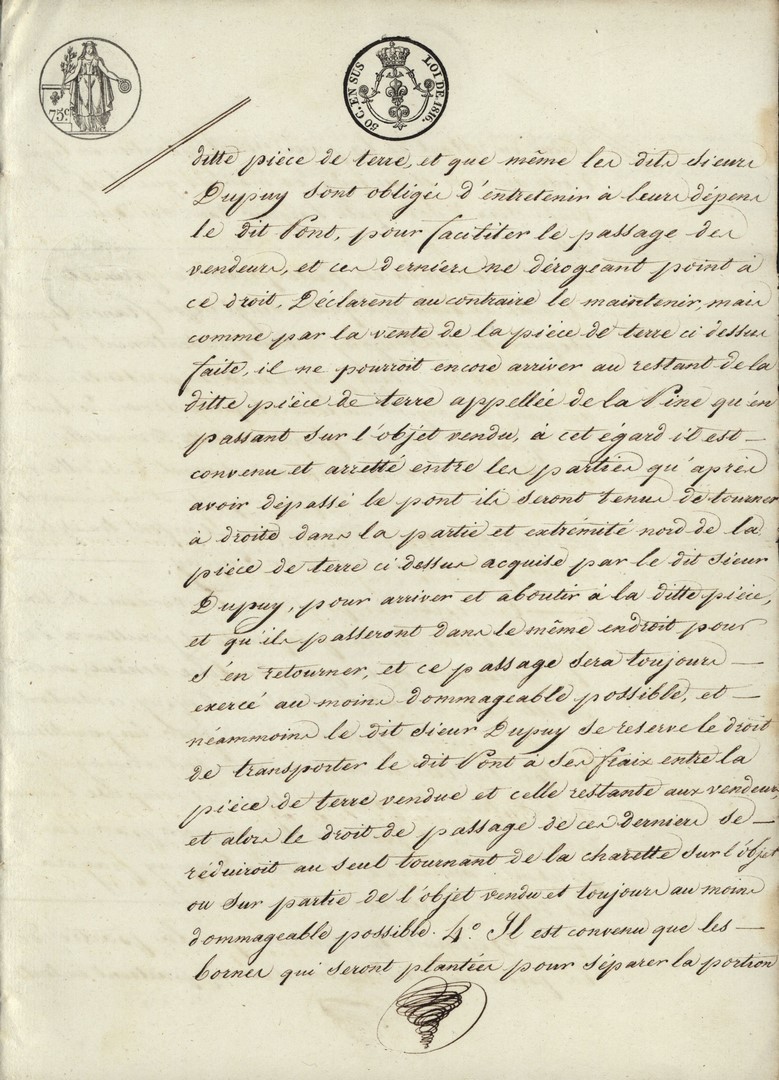 75c
50 C. EN SUS LOI DE 1816.
ditte pièce de terre, et que même les dits sieurs
Dupuy sont obligés d'entretenir à leurs dépens
le dit Pont, pour faciliter le passage des
vendeurs, et ces derniers ne dérogeant point à
ce droit, Déclarent au contraire le maintenir, mais
comme par la vente de la pièce de terre ci dessus
faite, il ne pourroit encore arriver au restant de la
ditte pièce de terre appellée de la Pine qu'en
passant sur l'objet vendu, à cet égard il est —
convenu et arretté entre les parties qu'après
avoir dépassé le pont ils seront tenus de tourner
à droite dans la partie et extrémité nord de la
pièce de terre ci dessus acquise par le dit sieur
Dupuy, pour arriver et aboutir à la ditte pièce,
et qu'ils passeront dans le même endroit pour
s'en retourner, et ce passage sera toujours —
exercé au moins dommageable possible, et —
néammoins le dit sieur Dupuy se reserve le droit
de transporter le dit Pont à ses fraix entre la
pièce de terre vendue et celle restante aux vendeurs,
et alors le droit de passage de ces derniers se —
réduiroit au seul tournant de la charette sur l'objet
ou sur partie de l'objet vendu et toujours au moins
dommageable possible. 4.º Il est convenu que les —
bornes qui seront plantées pour séparer la portion